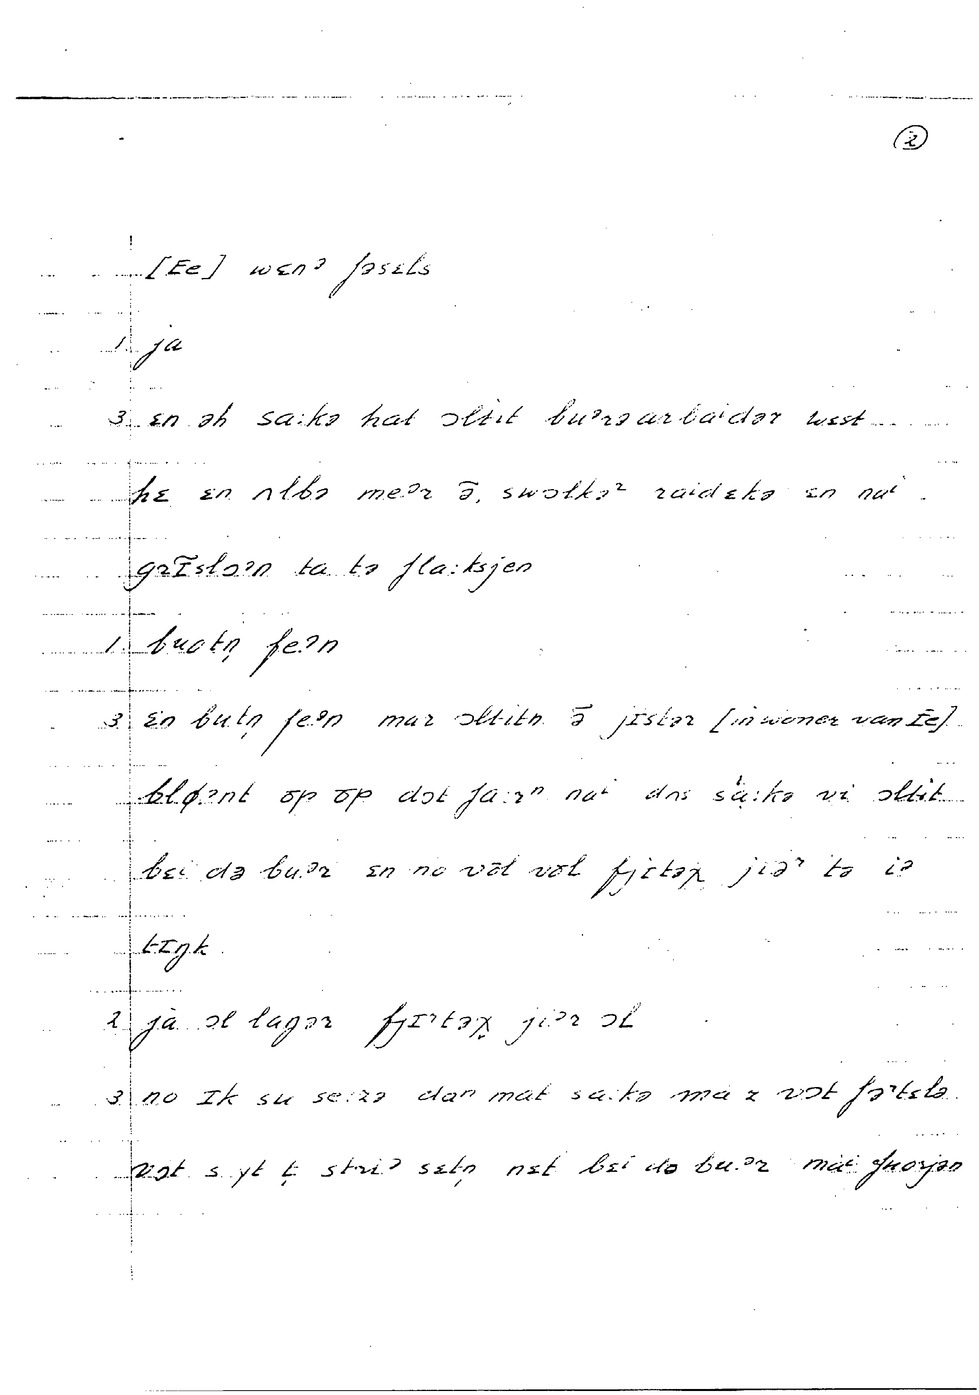 ②
[Ee] wɛnᵊ fəsɛls
1. ja
3 ɛn əh sa:kə hat ɔltit buᵊrəarbaⁱdər wɛst
hɛ ɛn ʌlbə meᵊr ə̄, swɔlkəʳ raidɛkə ɛn naⁱ
grīslɔᵊn ta tə fla:ksjen
1. buotṇ feᵊn
3 ɛn butṇ feᵊn mar ɔltitn ə̄ jɪstər [inwoner van Ee]
bløᵊnt op op dɔt fa:rⁿ naⁱ dʌs sa:kə vi ɔltit
bɛi də buᵊr ɛn no vōl vōl fjɪtəχ jiəʳ tə iə
tɪŋk
2 ja ɔl lagər fjɪʳtəχ jiᵊr ɔl
3 no ɪk su se:zə daⁿ mat sa:kə ma r vɔt fəʳtɛlə
vɔt s yt ṭ striᵊ sɛtṇ nɛt bɛi də buᵊr maⁱ fuorjən